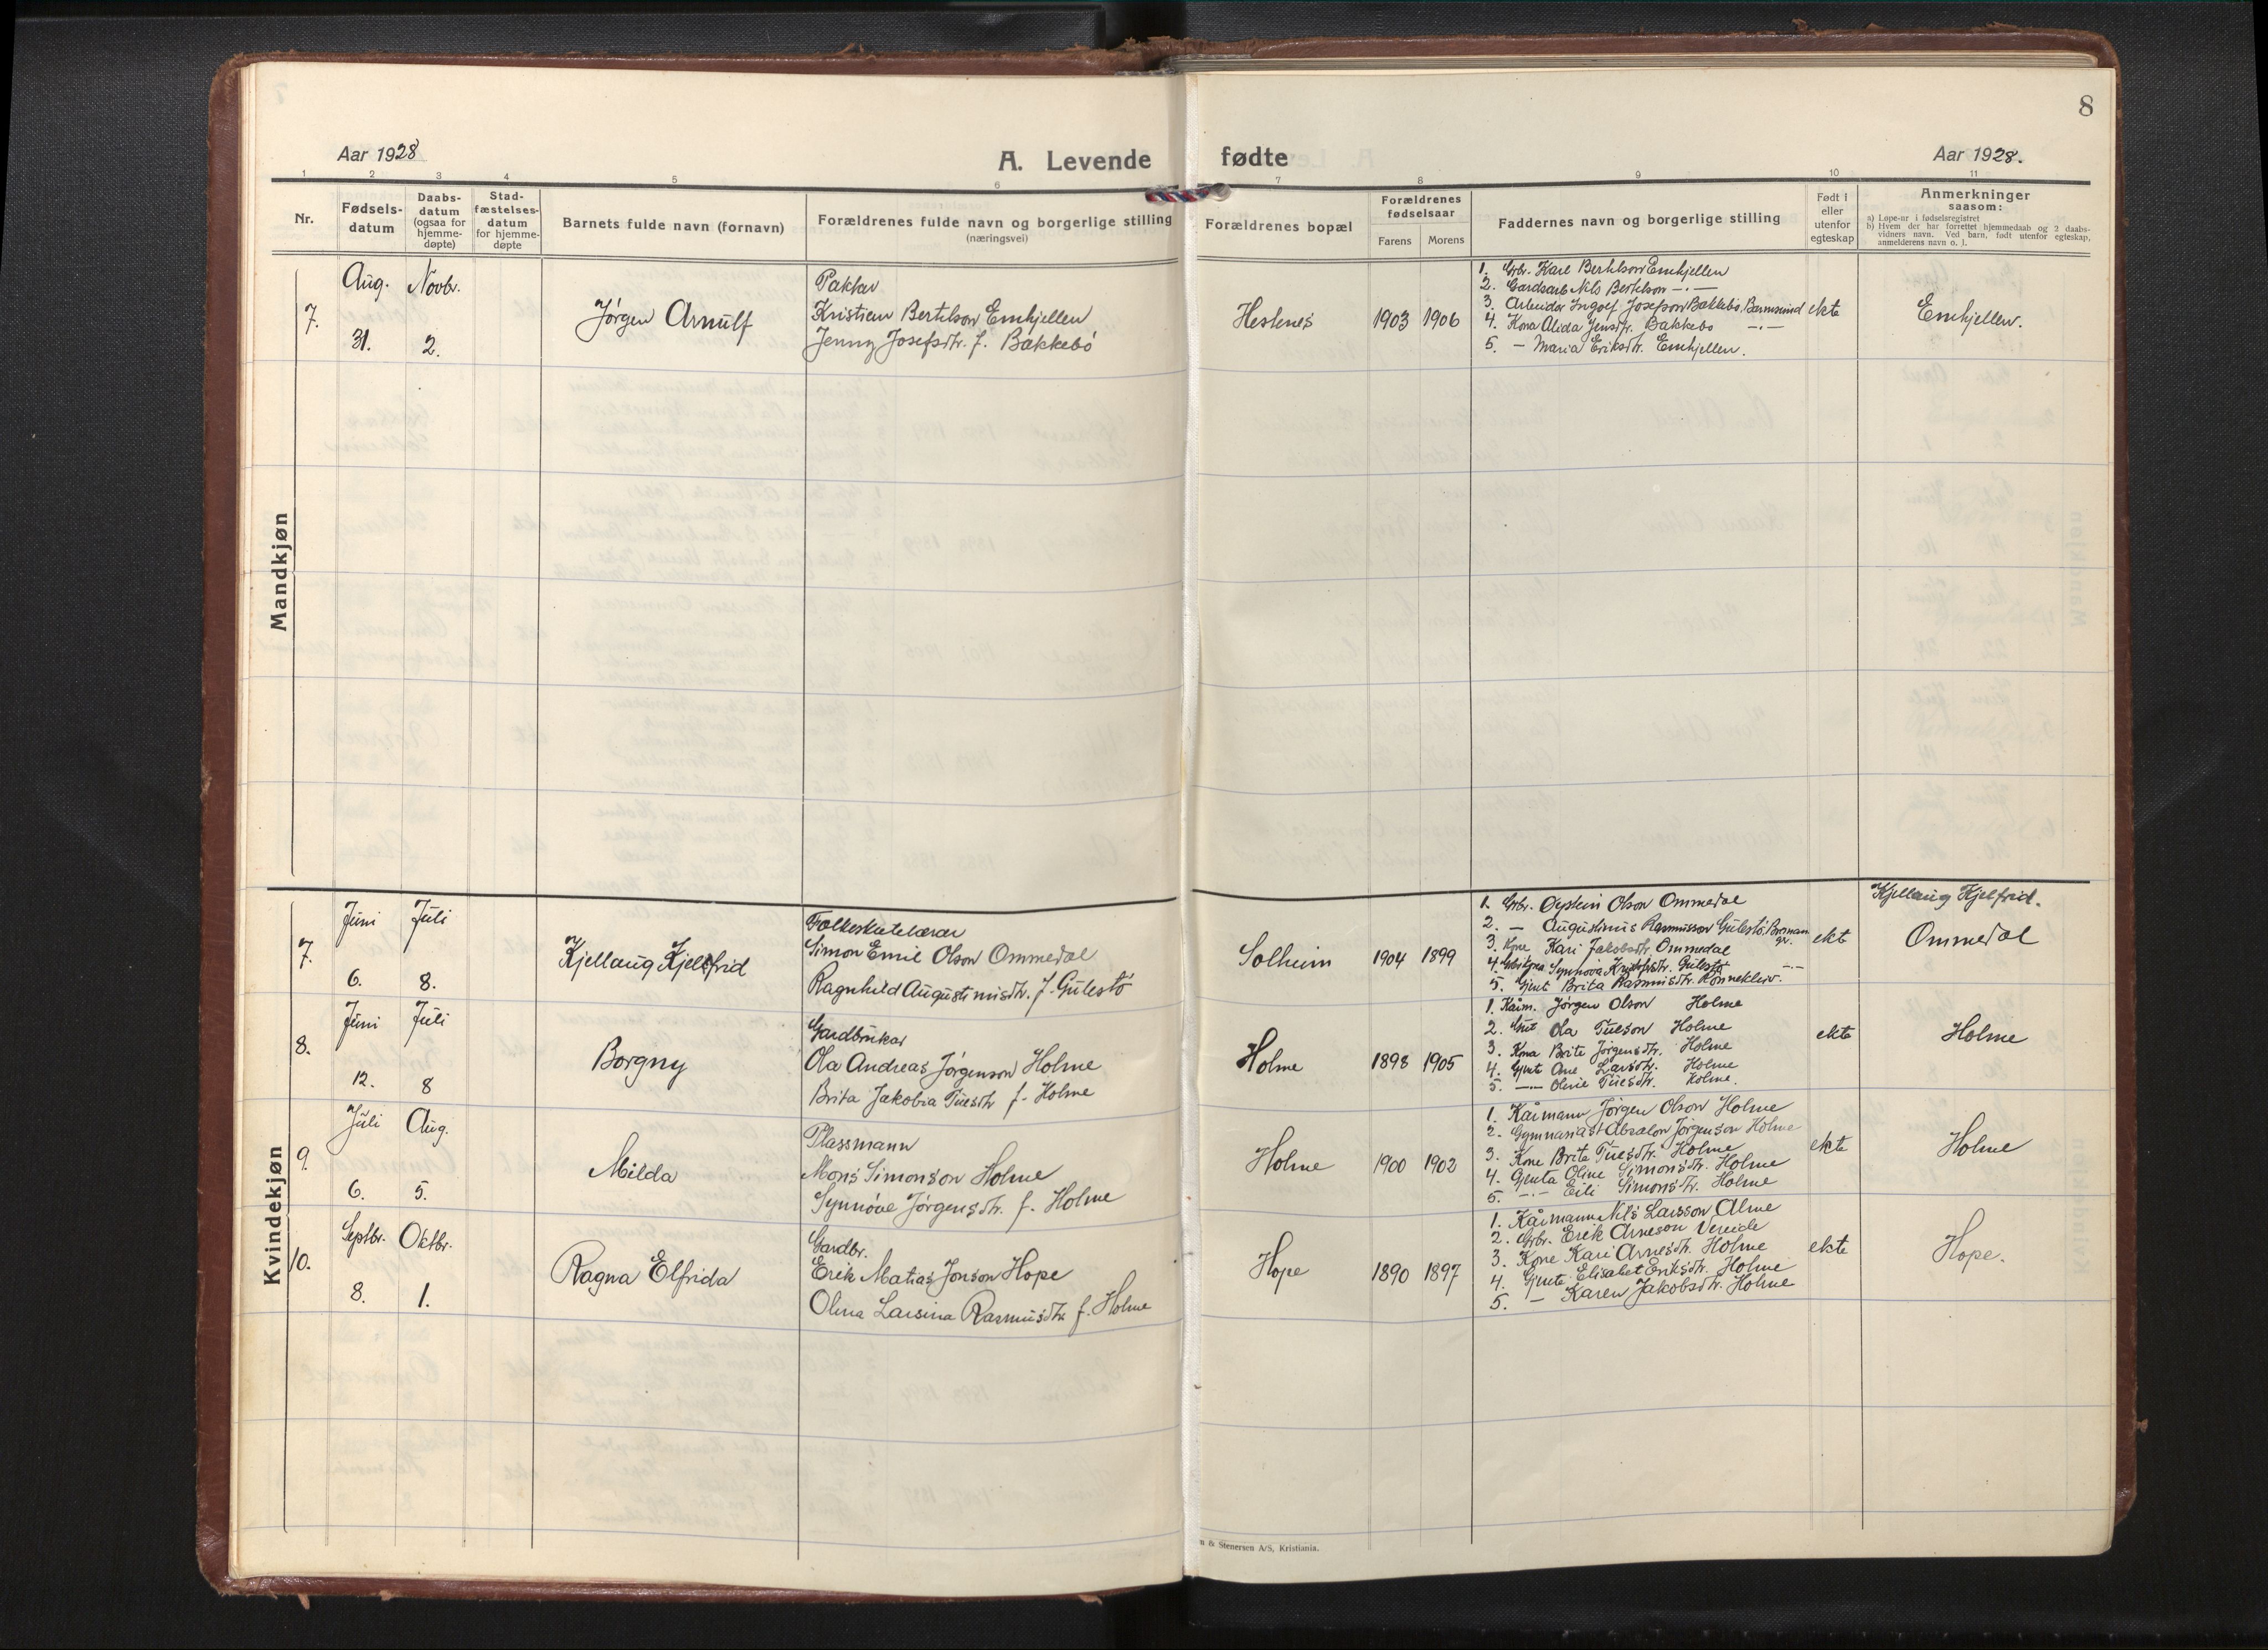 8
Aar 1928
A. Levende fødte
Aar 1928.
1 2 3 4 5 6 7 8 9 10 11
Nr.
Fødsels-
datum
Daabs-
datum
(ogsaa for
hjemme-
døpte)
Stad-
fæstelses-
datum
for hjemme-
døpte
Barnets fulde navn (fornavn)
Forældrenes fulde navn og borgerlige stilling
(næringsvei)
Forældrenes bopæl
Forældrenes
fødselsaar
Farens Morens
Faddernes navn og borgerlige stilling
Født i
eller
utenfor
egteskap
Anmerkninger
saasom:
a) Løpe-nr i fødselsregistret
b) Hvem der har forrettet hjemmedaab og 2 daabs-
vidners navn. Ved barn, født utenfor egteskap,
anmelderens navn o. l.
Mandkjøn
7.
Aug.
31.
Novbr.
2.
Jørgen Arnulf
Paktar
Kristian Bertelson Emhjellen
Jenny Josefsdtr. f. Bakkebö
Hestenes
1903 1906
1. Grbr. Karl Bertelson Emhjellen
2. Gardsarb Nils Bertelson -"-
3. Arbeider Ingolf Josefson Bakkebö, Barmsund
4. Kona Alida Jensdtr. Bakkebo -"-
5. - Maria Eriksdtr. Emhjellen.
ekte
Emhjellen.
Kvindekjøn
7.
Juni
6.
Juli
8.
Kjellaug Kjelfrid
Folkeskulelærar
Simon Emil Olson Ommedal
Ragnhild Augustinusdtr. f. Gulestö
Solheim
1904 1899
1. Grbr. Øystein Olson Ommedal
2. - Augustinus Rasmusson Gulestö, Barmam
gr.
3. Kona Kari Jakobsdtr. Ommedal
4. Grbrkona Synnøva Gulestö -"-
5. Gjent Brita Rasmusdtr. Rönneklev.
ekte
Kjellaug Kjelfrid.
Ommedal
8.
Juni
12.
Juli
8
Borgny
Gardbrukar
Ola Andreas Jørgenson Holme
Brita Jakobia Tuesdtr f. Holme
Holme
1898 1905
1. Kårm. Jørgen Olson Holme
2. Gut Ola Tueson Holme
3. Kona Brite Jørgensdtr. Holme
4. Gjent Ane Larsdtr. Holme
5. -"- Oline Tuesdtr. Holme.
ekte
Holme
9.
Juli
6.
Aug.
5.
Milda
Plassmann
Mons Simonson Holme
Synnøve Jørgensdtr. f. Holme
Holme
1900 1902
1. Kårmann Jörgen Olson Holme
2. Gymnasiast Absalon Jørgenson Holme
3. Kone Brite Tuesdtr. Holme
4. Gjenta Oline Simonsdtr. Holme
5. -"- Eili Simonsdtr. Holme
ekte
Holme
10.
Septbr.
8.
Oktbr.
1.
Ragna Elfrida
Gardbr.
Erik Matias Jonson Hope
Olina Larsina Rasmusdtr f. Holme
Hope
1890 1897
1. Kårmann Nils Larsson Alme
2. Grbr. Erik Arneson Vereide
3. Kone Kari Arnesdtr. Holme
4. Gjente Elisabet Eriksdtr. Holme
5. - Karen Jakobsdtr. Holme
ekte
Hope.
& Stenersen A/S, Kristiania.